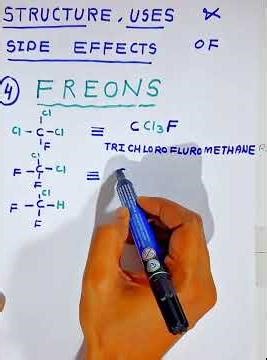 STRUCTURE, USES &
SIDE EFFECTS OF
4 FREONS
Cl
Cl - C - Cl ≡ CCl3F
F
TRICHLOROFLUROMETHANE
Cl
F - C - Cl ≡
F
Cl
F - C - H
F